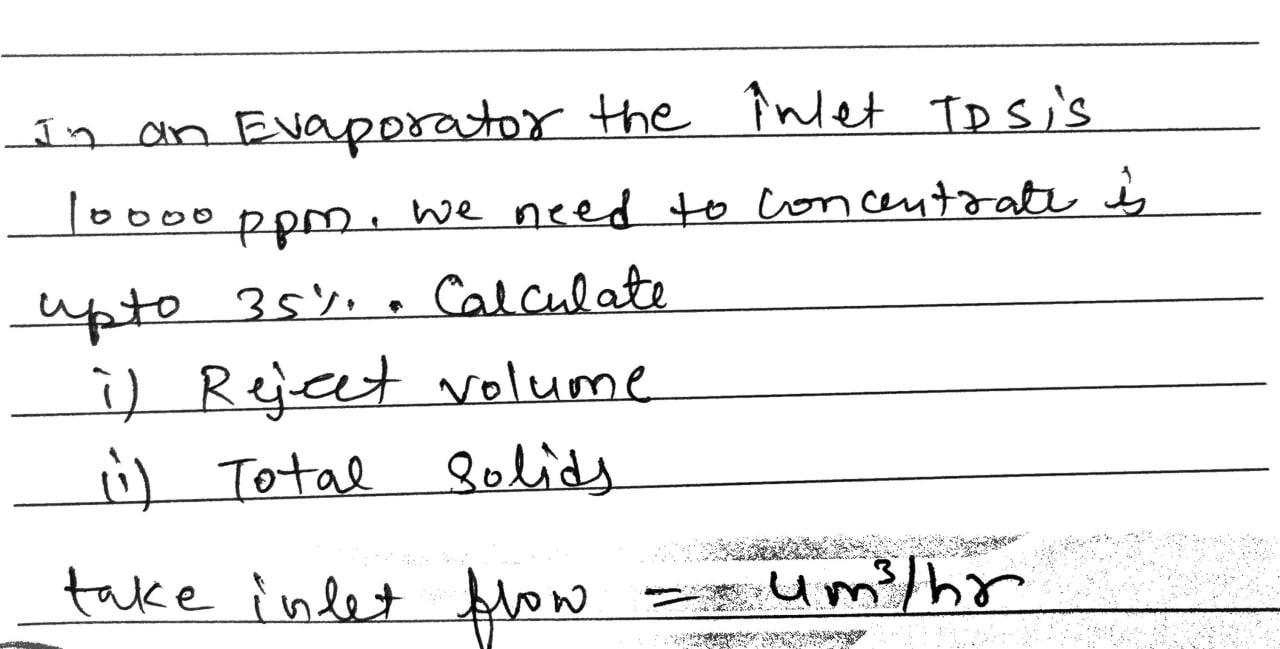 In an Evaporator the inlet TDS is
10000 ppm. We need to concentrate is
upto 35%. Calculate
i) Reject volume
ii) Total Solids
take inlet flow = 4m³/hr